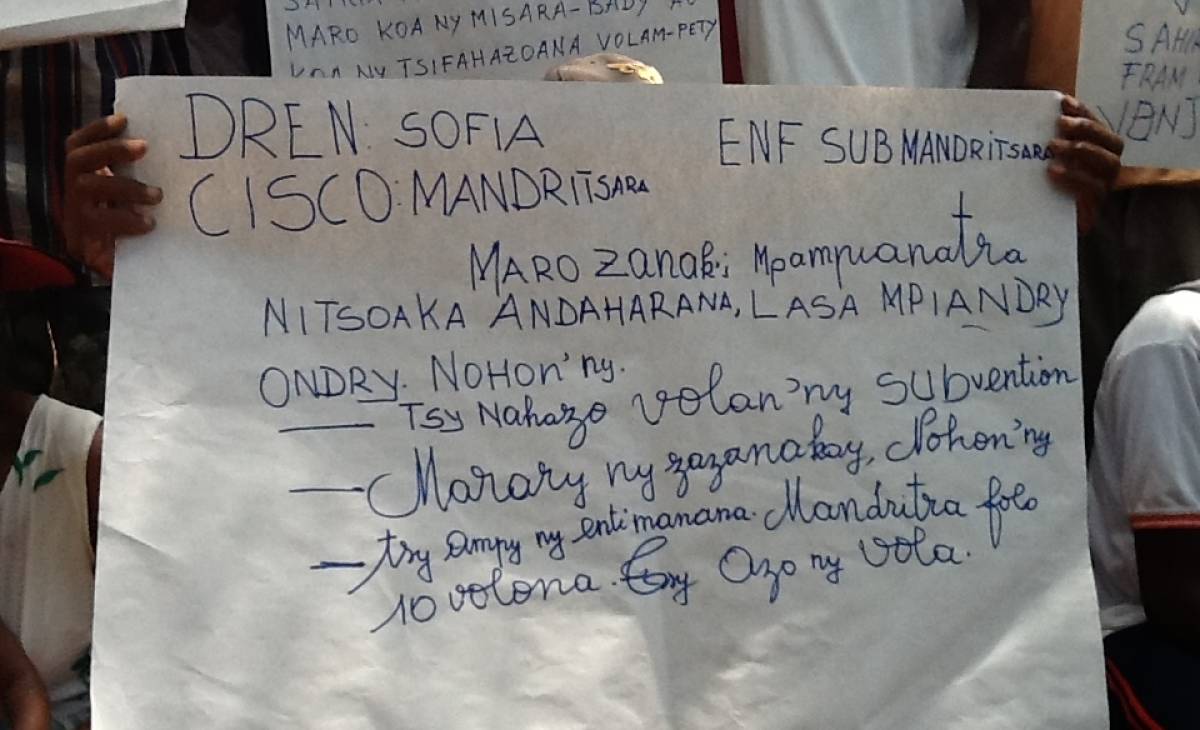 MARO KOA NY MISARA-BADY
KOA NY TSIFAHAZOANA VOLAM-PETY
SAHI
FRAM
DREN: SOFIA
ENF SUB MANDRITSARA
CISCO: MANDRITSARA
MARO zanak; Mpampianatra
NITSOAKA ANDAHARANA, LASA MPIANDRY
ONDRY. NOHON'ny.
— TSY Nahazo volan'ny SUBvention
— Marary ny zazanakay, Nohon'ny
— tsy ampy ny entimanana. Mandritra folo
10 volona. Tsy Azo ny vola.